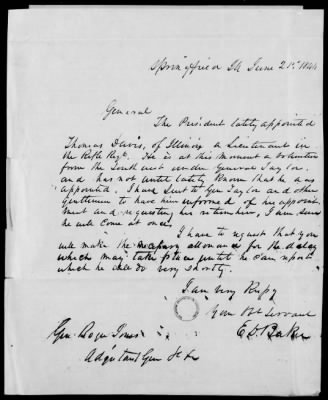 Springfield Ill June 21st 1846
General
The President lately appointed
Thomas Davis, of Illinois a Lieutenant in
the Rifle Regt. He is at this moment a volunteer
from the South west under General Taylor.
and has not until lately known that he was
appointed. I have sent to Gen Taylor and other
Gentlemen to have him informed of his appoint
ment and requesting his return here, I am sure
he will come at once.
I have to request that you
will make the necessary allowance for the delay
which may take place until he can report
which he will do very shortly.
I am very Respy
Your Obt Servant
E D Baker
Gen Roger Jones
Adjutant Gen